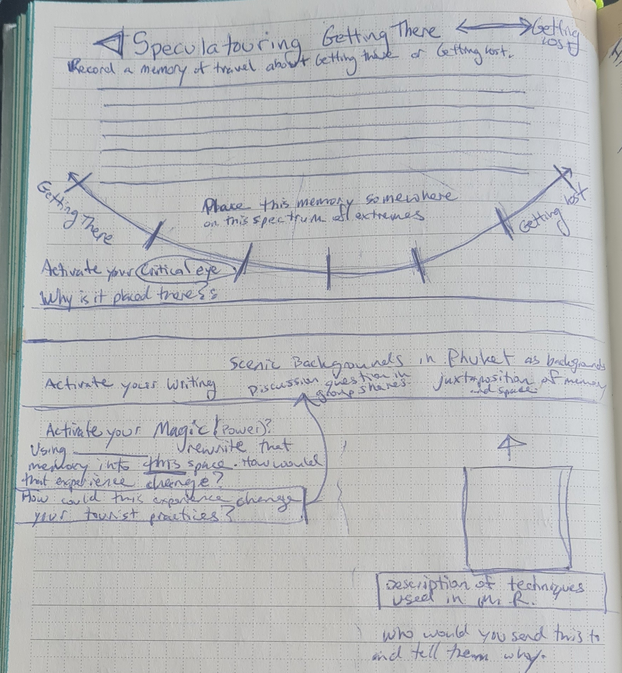 Speculatouring Getting There ⟷ Getting Lost
Record a memory of travel about Getting there or Getting lost.
Getting There
Place this memory somewhere
on this spectrum of extremes
Getting lost
Activate your Critical eye
Why is it placed there?
Scenic Backgrounds in Phuket as backgrounds
Activate your Writing
Discussion question in
group shares.
juxtaposition of memory
and space
Activate your Magic (Power)?
Using ________ rewrite that
memory into this space. How would
that experience change?
How could this experience change
your tourist practices?
Description of techniques
used in M. R.
Who would you send this to
and tell them why.